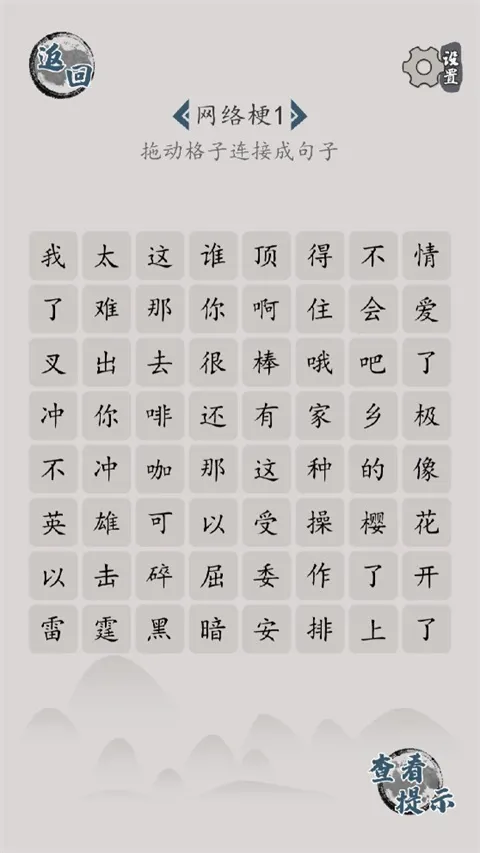 返回
设置
网络梗1
拖动格子连接成句子
我太这谁顶得不情
了难那你啊住会爱
叉出去很棒哦吧了
冲你啡还有家乡极
不冲咖那这种的像
英雄可以受操樱花
以击碎屈委作了开
雷霆黑暗安排上了
查看
提示